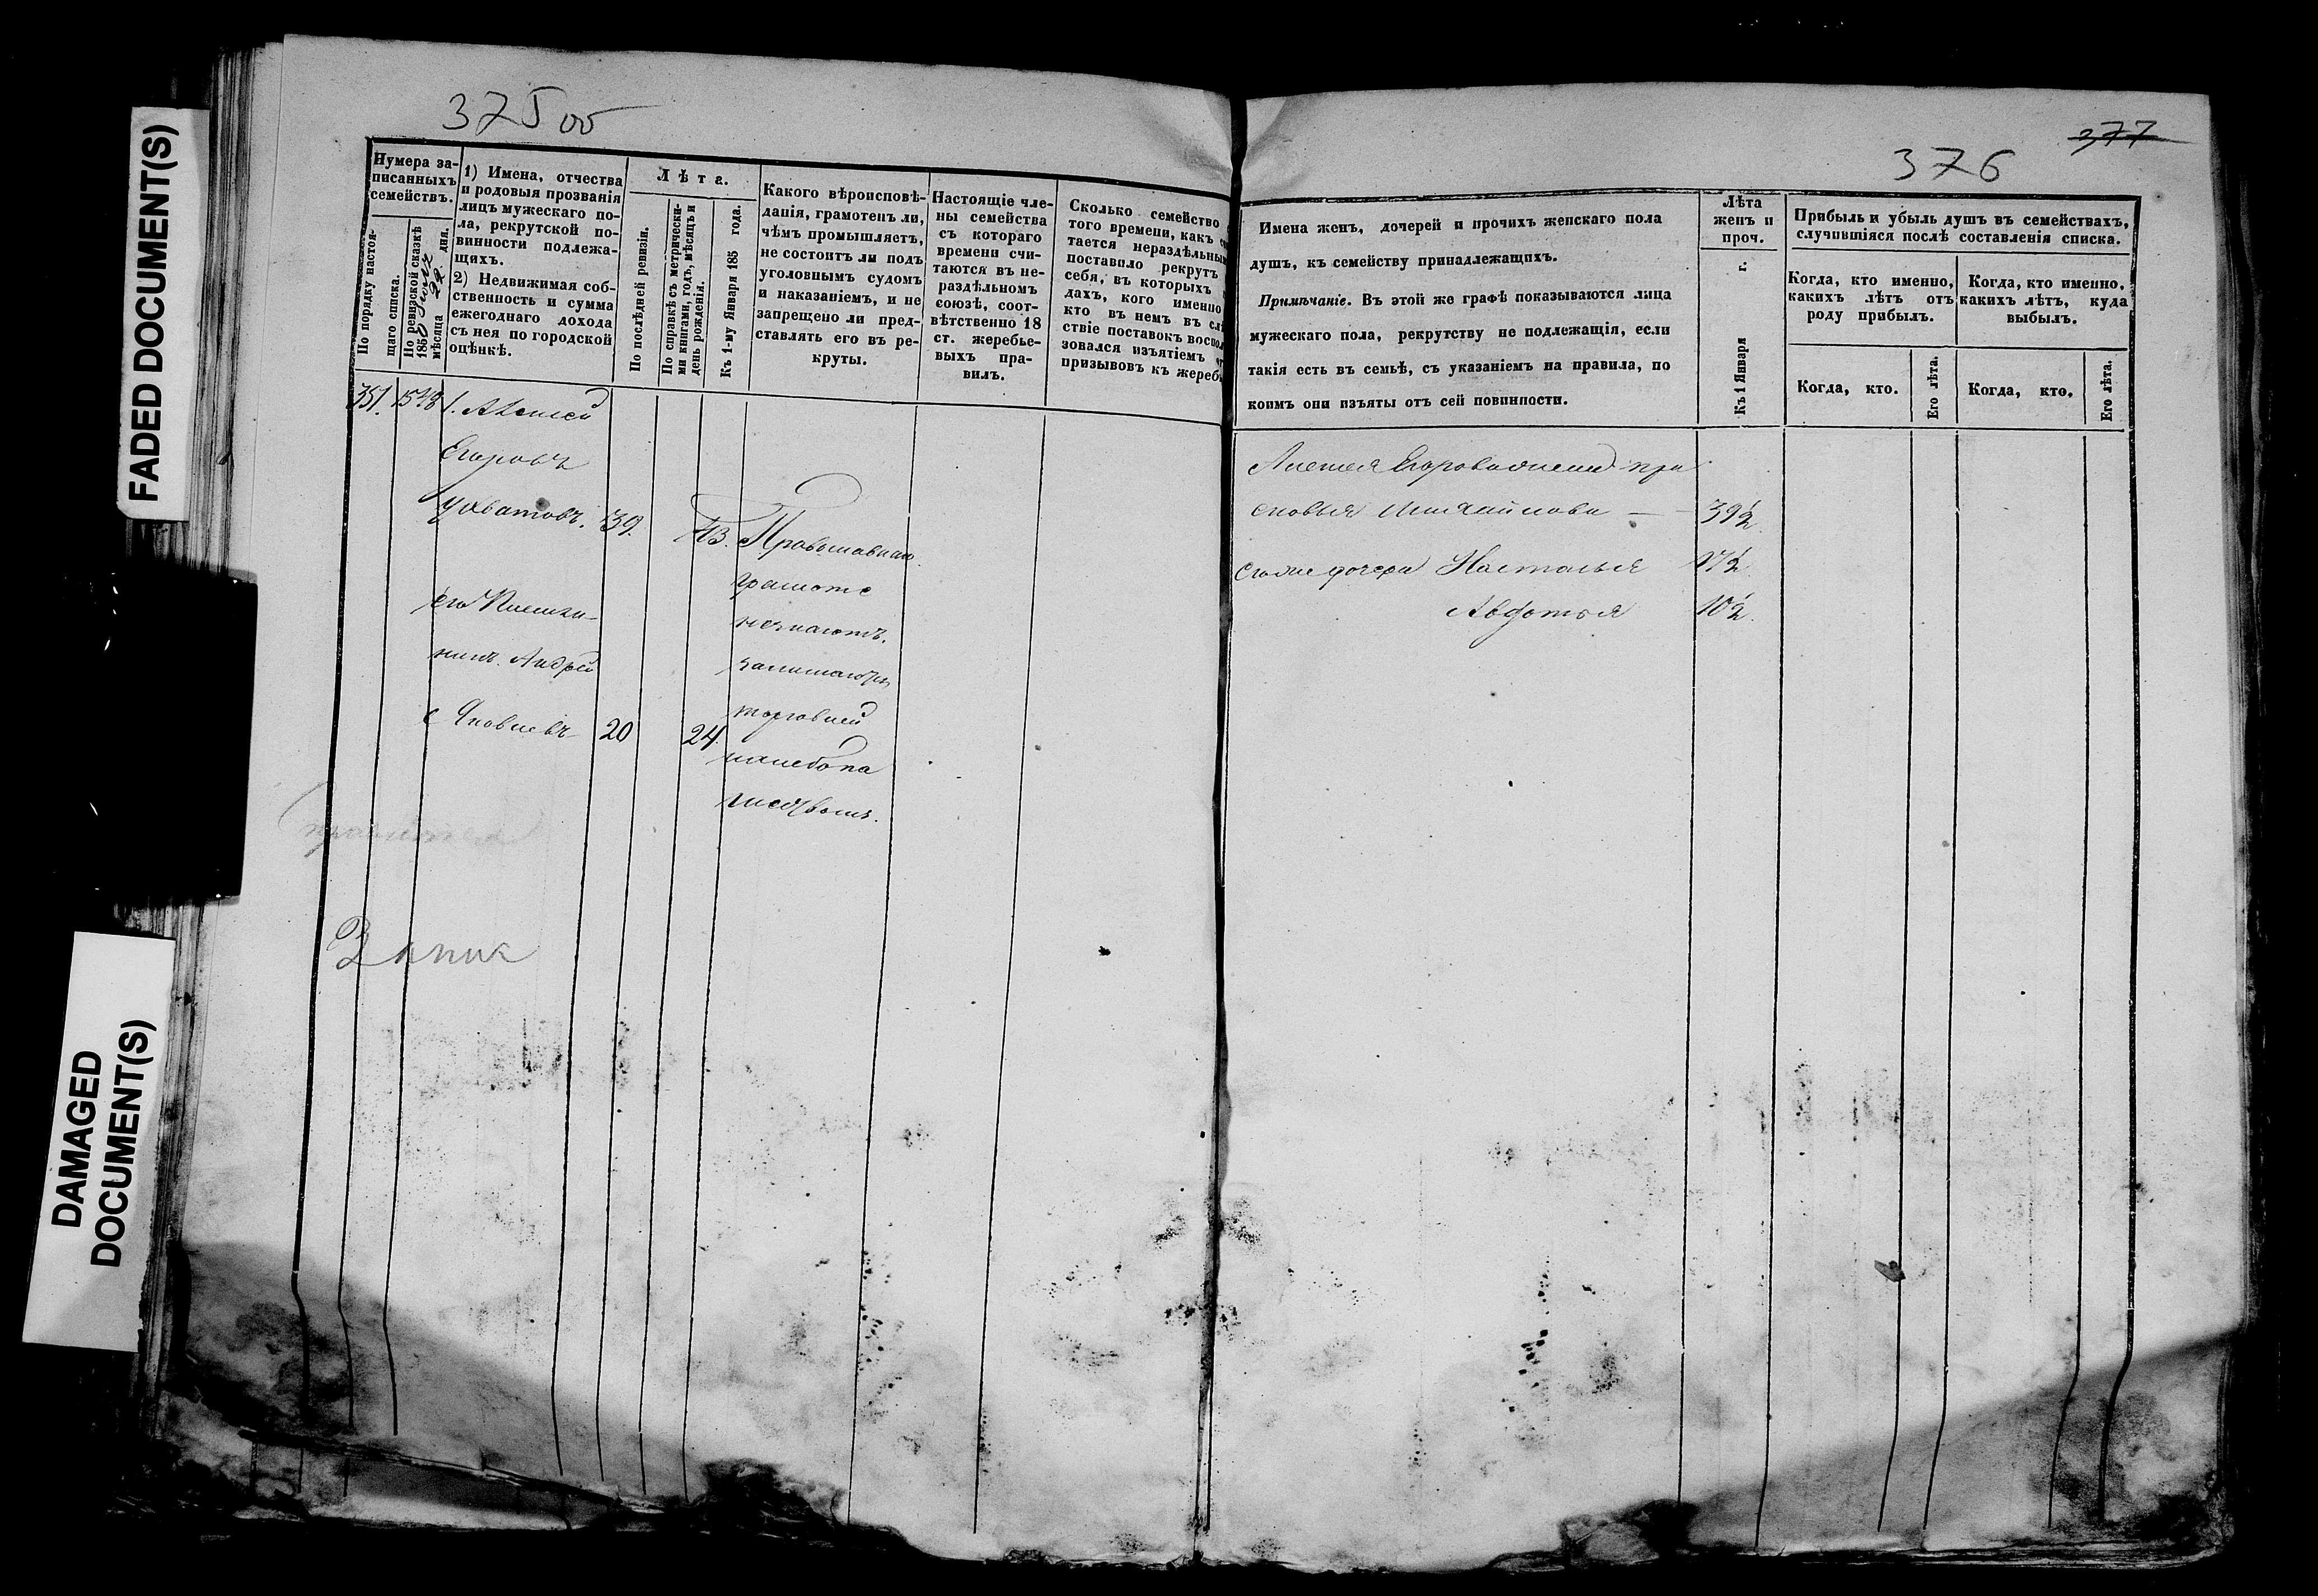 FADED DOCUMENT(S)
DAMAGED
DOCUMENT(S)
375 об
Нумера за-
писанныхъ
семействъ.
По порядку настоя-
щаго списка.
По ревизской сказкѣ
185
мѣсяца 22 дня.
1) Имена, отчества
и родовыя прозванія
лицъ мужескаго по-
ла, рекрутской по-
винности подлежа-
щихъ.
2) Недвижимая соб-
ственность и сумма
ежегоднаго дохода
съ нея по городской
оцѣнкѣ.
Лѣта.
По послѣдней ревизіи.
По справкѣ съ метрически-
ми книгами, годъ, мѣсяцъ и
день рожденія.
Къ 1-му Января 185 года.
Какого вѣроисповѣ-
данія, грамотенъ ли,
чѣмъ промышляетъ,
не состоитъ ли подъ
уголовнымъ судомъ
и наказаніемъ, и не
запрещено ли пред-
ставлять его въ ре-
круты.
Настоящіе чле-
ны семейства
съ котораго
времени счи-
таются въ не-
раздѣльномъ
союзѣ, соот-
вѣтственно 18
ст. жеребье-
выхъ пра-
вилъ.
Сколько семейство
того времени, какъ
тается нераздѣльным
поставило рекрутъ
себя, въ которыхъ
дахъ, кого именно
кто въ немъ въ сл
ствіе поставокъ воспол
зовался изъятіемъ
призывовъ къ жереб
351. 1548 1. Алексей
Егоровъ
Ухватовъ. 39. 43. Православнаго
грамоте
незнаютъ.
занимаются
торговлей
ихлебопа
шествомъ.
его Племян-
никъ Андрей
Яковлевъ 20 24.
Запис
376
377
Имена женъ, дочерей и прочихъ женскаго пола
душъ, къ семейству принадлежащихъ.
Примѣчаніе. Въ этой же графѣ показываются лица
мужескаго пола, рекрутству не подлежащія, если
такія есть въ семьѣ, съ указаніемъ на правила, по
коимъ они изъяты отъ сей повинности.
Лѣта
женъ и
проч.
Къ 1 Января г.
Прибыль и убыль душъ въ семействахъ,
случившіяся послѣ составленія списка.
Когда, кто именно,
какихъ лѣтъ отъ
роду прибылъ.
Когда, кто именно,
какихъ лѣтъ, куда
выбылъ.
Когда, кто.
Его лѣта.
Когда, кто.
Его лѣта.
Алексея Егорова жена Пра
сковья Михайлова — 39½.
его же дочери Наталья 17½
Авдотья 10½.